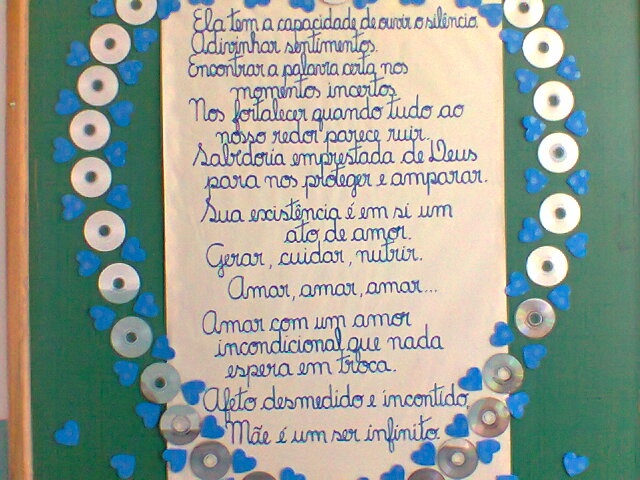 Ela tem a capacidade de ouvir o silêncio
Adivinhar sentimentos.
Encontrar a palavra certa nos
momentos incertos
Nos fortalecer quando tudo ao
nosso redor parece ruir.
Sabedoria emprestada de Deus
para nos proteger e amparar.
Sua existência é em si um
ato de amor.
Gerar, cuidar, nutrir.
Amar, amar, amar...
Amar com um amor
incondicional que nada
espera em troca.
Afeto desmedido e incontido
Mãe é um ser infinito.